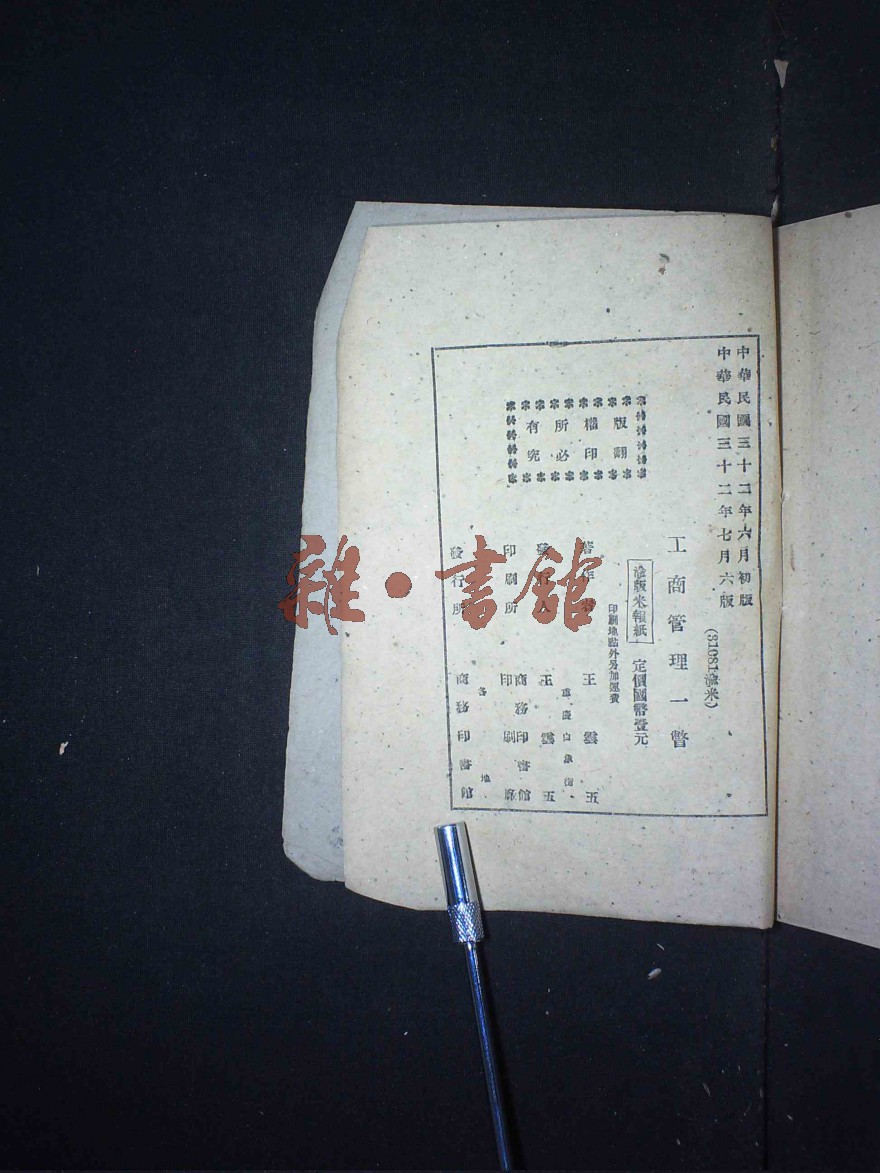 中華民國三十二年六月初版
中華民國三十二年七月六版
(31081渝米)
工商管理一瞥
渝版米報紙
定價國幣壹元
印刷地點外另加運費
版權所有
翻印必究
著作者 王雲五
重慶白象街
發行人 王雲五
印刷所 商務印書館
印刷廠
各地
發行所 商務印書館
雜·書館